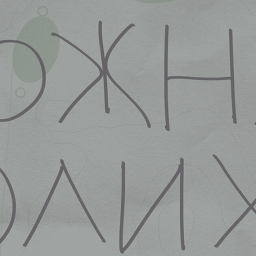 ОЖН
ОЛИХ